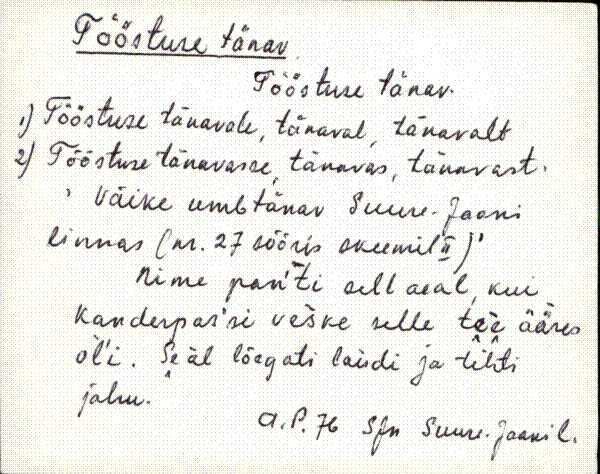 Tööstuse tänav
Tööstuse tänav.
1) Tööstuse tänavale, tänaval, tänavalt
2) Tööstuse tänavasse, tänavas, tänavast.
' Väike umbtänav Suure-Jaani
linnas (nr. 27 sööris skeemil II)'
Nime pan'ti sell aeal, kui
Kanderpas'si veške selle tee ääres
ol'i. Seäl lõegati laudi ja tehti
jahu.
A.P. 76 Sjn Suure-Jaani l.